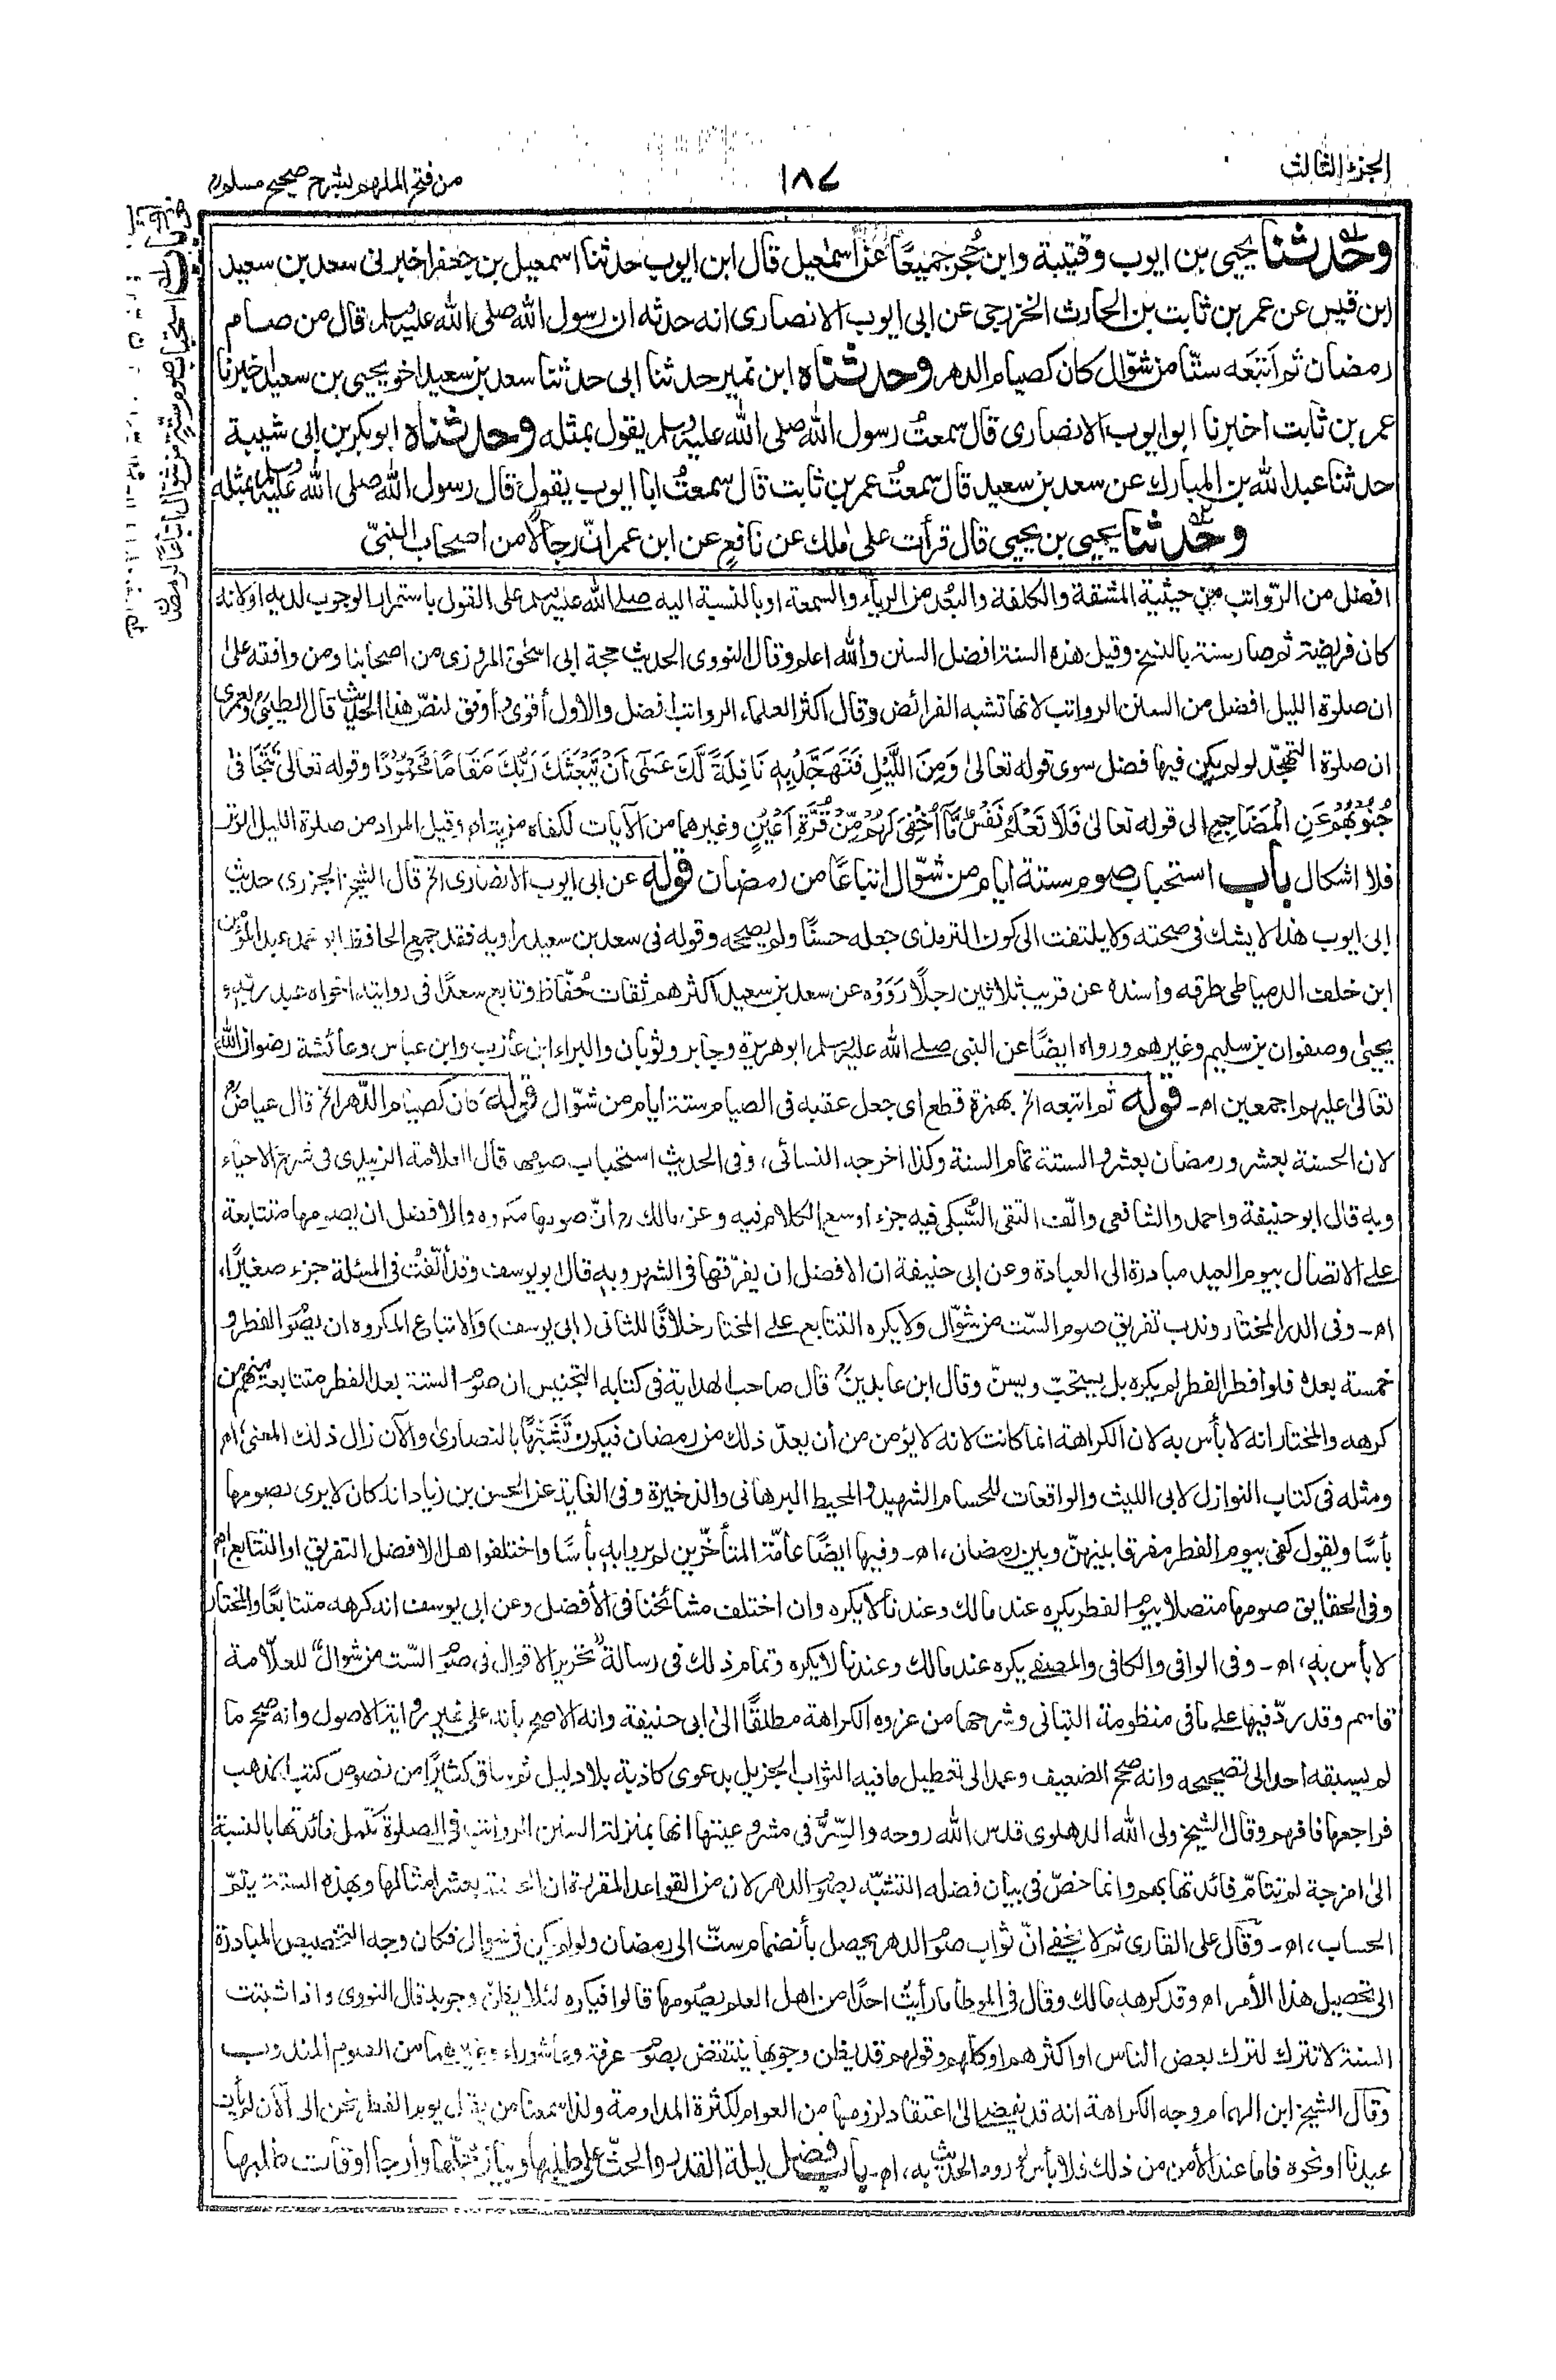 الجزء الثالث
١٨٧
من فتح الملهم بشرح صحيح مسلم
باب استحباب صوم ستة من شوال اتباعا لرمضان
وحدثنا يحيى بن ايوب وقتيبة وابن حُجر جميعًا عن اسمٰعيل قال ابن ايوب حدثنا اسمعيل بن جعفر اخبرنى سعد بن سعيد
ابن قيس عن عمر بن ثابت بن الحارث الخزرجى عن ابى ايوب الانصارى انه حدثه ان رسول الله صلى الله عليه وسلم قال من صام
رمضان ثم اَتبَعَه ستًّا من شوّال كان كصيام الدهر وحدثناه ابن نمير حدثنا ابى حدثنا سعد بن سعيد اخو يحيى بن سعيد اخبرنا
عمر بن ثابت اخبرنا ابو ايوب الانصارى قال سمعتُ رسول الله صلى الله عليه وسلم يقول بمثله وحدثناه ابو بكر بن ابى شيبة
حدثنا عبد الله بن المبارك عن سعد بن سعيد قال سمعتُ عمر بن ثابت قال سمعتُ ابا ايوب يقول قال رسول الله صلى الله عليه وسلم بمثله
وحدثنا يحيى بن يحيى قال قرأت على مٰلك عن نافعٍ عن ابن عمر انّ رجالًا من اصحاب النبىّ
افضل من الرّواتب من حيثية المشقة والكلفة والبُعد من الرياء والسمعة او بالنسبة اليه صلى الله عليه وسلم على القول باستمرار الوجوب لديه او لانه
كان فريضة ثم صار سنة بالنسخ وقيل هذه السنة افضل السنن والله اعلم وقال النووى الحديث حجة ابى اسحٰق المروزى من اصحابنا ومن وافقه علىٰ
ان صلوة الليل افضل من السنن الرواتب لانها تشبه الفرائض وقال اكثر العلماء الرواتب افضل والاول أقوى وأوفق لنصّ هذا الحديث قال الطيبىؒ ولعمرى
ان صلوة التهجّد لو لم يكن فيها فضل سوى قوله تعالىٰ وَمِنَ اللَّيْلِ فَتَهَجَّدْ بِهٖ نَافِلَةً لَّكَ عَسٰٓى اَنْ يَّبْعَثَكَ رَبُّكَ مَقَامًا مَّحْمُوْدًا وقوله تعالىٰ تَتَجَافىٰ
جُنُوْبُهُمْ عَنِ الْمَضَاجِعِ الى قوله تعالىٰ فَلَا تَعْلَمُ نَفْسٌ مَّآ اُخْفِىَ لَهُمْ مِّنْ قُرَّةِ اَعْيُنٍ وغيرهما من الآيات لكفاه مزية اه وقيل المراد من صلوة الليل الوتر
فلا اشكال باب استحباب صوم ستة ايام من شوّال اتباعًا من رمضان قوله عن ابى ايوب الانصارى الخ قال الشيخ الجزرى حديث
ابى ايوب هذا لا يشك فى صحته ولا يلتفت الى كون الترمذى جعله حسنًا ولم يصححه وقوله فى سعد بن سعيد راويه فقد جمع الحافظ ابو محمد عبد المؤمن
ابن خلف الدمياطى طرقه واسنده عن قريب ثلاثين رجلًا رَوَوْه عن سعد بن سعيد اكثرهم ثقات حُفّاظ وتابع سعدًا فى روايته اخواه عبد ربه و
يحيىٰ وصفوان بن سليم وغيرهم ورواه ايضًا عن النبى صلى الله عليه وسلم ابو هريرة وجابر وثوبان والبراء ابن عازب وابن عباس وعائشة رضوان الله
تعالىٰ عليهم اجمعين اه- قوله ثم اتبعه الخ بهمزة قطع اى جعل عقبه فى الصيام ستة أيام من شوّال قوله كان كصيام الدّهر الخ قال عياضؒ
لان الحسنة بعشر ورمضان بعشر والستة تمام السنة وكذا اخرجه النسائى، وفى الحديث استحباب صومها قال العلامة الزبيدى فى شرح الاحياء
وبه قال ابو حنيفة واحمد والشافعى والّف التقى السُّبكى فيه جزء اوسع الكلام فيه وعن مالكؒ أنّ صومها مكروه والافضل ان يصومها متتابعة
على الاتصال بيوم العيد مبادرة الى العبادة وعن ابى حنيفة ان الافضل ان يفرّقها فى الشهر وبه قال ابو يوسف وقد ألّفْتُ فى المسئلة جزء صغيرًا،
اه- وفى الدر المختار وندب تفريق صوم السّت من شوّال ولا يكره التتابع على المختار خلافًا للثانى (ابى يوسف) والاتباع المكروه ان يصوم الفطر و
خمسة بعده فلو افطر الفطر لم يكره بل يستحبّ ويسنّ وقال ابن عابدينؒ قال صاحب الهداية فى كتابه التجنيس ان صوم الستة بعد الفطر متتابعة منهم من
كرهه والمختار انه لا بأس به لان الكراهة انما كانت لانه لا يؤمن من أن يعدّ ذلك من رمضان فيكون تَشَبُّهًا بالنصارىٰ والآن زال ذلك المعنىٰ، اه
ومثله فى كتاب النوازل لابى الليث والواقعات للحسام الشهيد والمحيط البرهانى والذخيرة وفى الغاية عن الحسن بن زياد انه كان لا يرى بصومها
بأسًا ويقول كفى بيوم الفطر مفرقا بينهنّ وبين رمضان، اه- وفيها ايضًا عامّة المتأخّرين لم يروا به بأسًا واختلفوا هل الافضل التفريق او التتابع اه
وفى الحقايق صومها متصلا بيوم الفطر يكره عند مالك وعندنا لا يكره وان اختلف مشائخنا فى الأفضل وعن ابى يوسف انه كرهه متتابعًا والمختار
لا بأس به، اه- وفى الوافى والكافى والمصفى يكره عند مالك وعندنا لا يكره وتمام ذلك فى رسالة "تحرير الاقوال فى صوم السّت من شوال" للعلّامة
قاسم وقد ردّ فيها على ما فى منظومة التبانى وشرحها من عزوه الكراهة مطلقًا الىٰ ابى حنيفة وانه الاصح بأنه على غير رواية الاصول وانه صحح ما
لم يسبقه احد الى تصحيحه وانه صحح الضعيف وعمد الى تعطيل ما فيه الثواب الجزيل بدعوى كاذبة بلا دليل ثم ساق كثيرًا من نصوص كتب المذهب
فراجعها فافهم وقال الشيخ ولى الله الدهلوى قدس الله روحه والسِّرُّ فى مشروعيتها انها بمنزلة السنن الرواتب فى الصلوة تكمل فائدتها بالنسبة
الىٰ امزجة لم تتامّ فائدتها بهم وانما خصّ فى بيان فضله التشبّه بصوم الدهر لان من القواعد المقررة ان الحسنة بعشر امثالها وبهذه الستة يتمّ
الحساب، اه- وقال على القارى ثم لا يخفى انّ ثواب صوم الدهر يحصل بأنضمام ستّ الى رمضان ولو لم يكن فى شوال فكان وجه التخصيص المبادرة
الى تحصيل هذا الأمر اه وقد كرهه مالك وقال فى الموطأ ما رأيتُ احدًا من اهل العلم يصومها قالوا فيكره لئلا يظنّ وجوبه قال النووى واذا ثبتت
السنة لا تترك لترك بعض الناس او اكثرهم او كلّهم وقولهم قد يظن وجوبها ينتقض بصوم عرفة وعاشوراء وغيرهما من الصوم المندوب
وقال الشيخ ابن الهمام وجه الكراهة انه قد يفضى الىٰ اعتقاد لزومها من العوام لكثرة المداومة ولذا سمعنا من يقول يوم الفطر نحن الى الآن لم يأت
عيدنا او نحوه فاما عند الأمن من ذلك فلا بأس لورود الحديث به، اه- باب فضل ليلة القدر والحثّ على طلبها وبيان محلّها وأرجأ اوقات طلبها